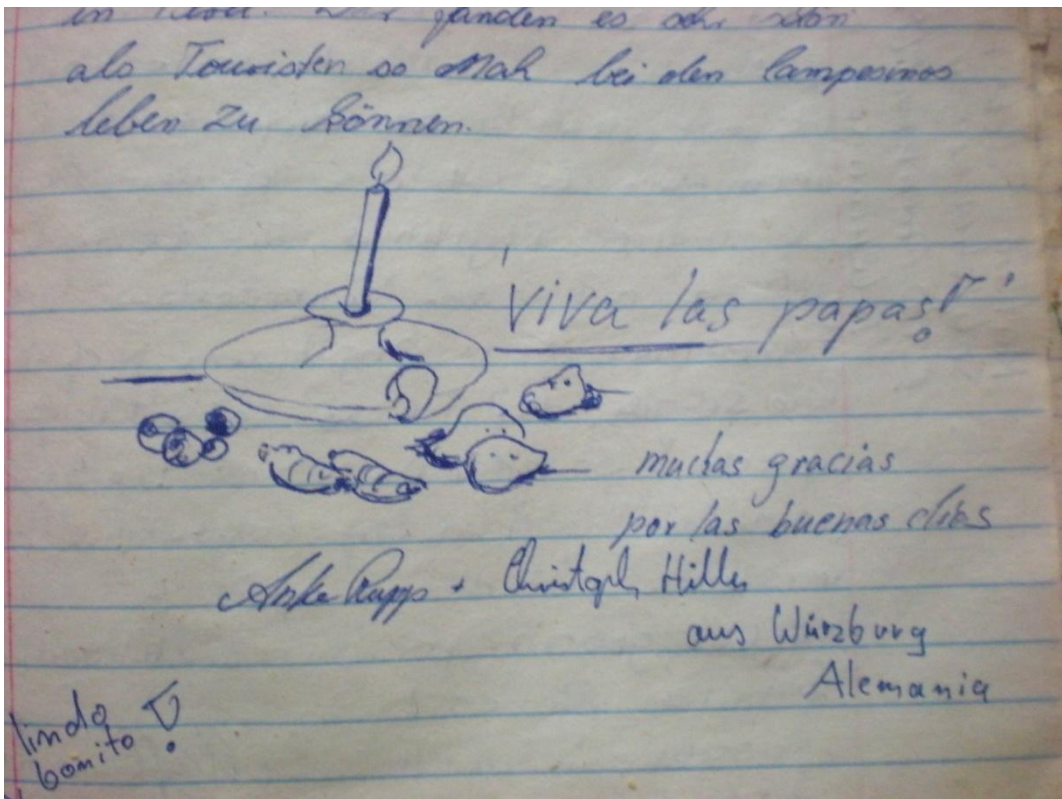 fanden es sehr schön
als Touristen so nah bei den Campesinos
leben zu können.
'Viva las papas!'
muchas gracias
por las buenas días
Anke Rupp + Christoph Hiller
aus Würzburg
Alemania
lindo
bonito !